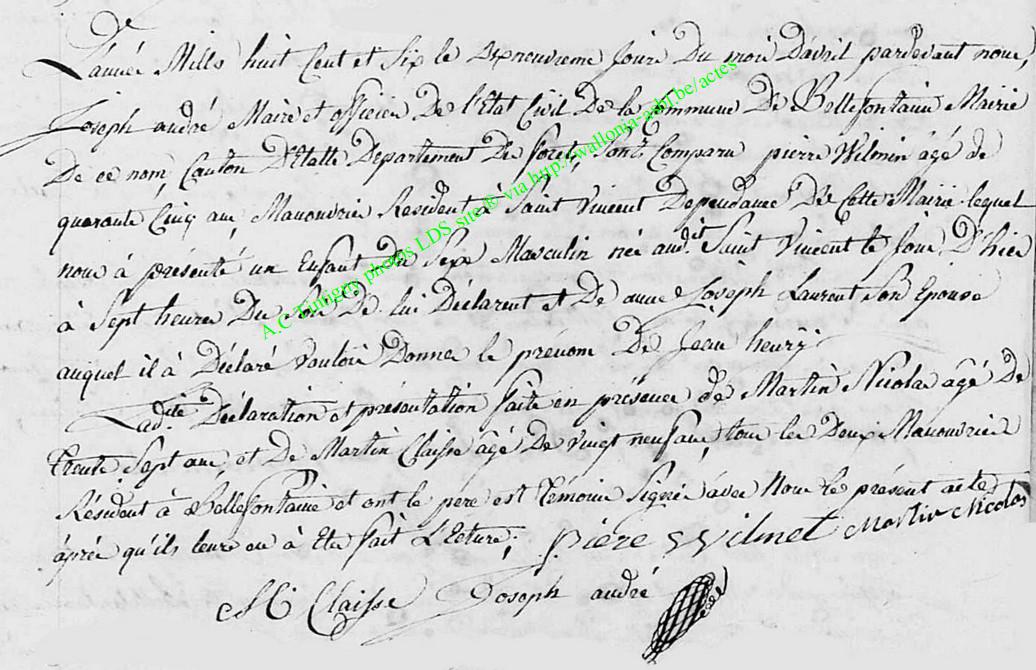 L'année Mille huit Cent et Six le dixneuvieme Jour Du moi D'avril pardevant nous,
Joseph andré Maire et officier De l'Etat Civil De la Commune De Bellefontaine Mairie
De ce nom, Canton D'Etalle Departement De foret, Sont Comparu pierre Wilmin âgé de
quarante Cinq ans, Manouvrie Resident à Saint Vincent Dependance De Cette Mairie lequel
nous à présenté un Enfant Du Sexe Masculin née audit Saint Vincent le jour D'hier
à Sept heures Du Soir De lui Déclarent et De anne Joseph Laurent Son Epouse
auquel il à Déclaré vouloir Donner le prenom De Jean henry
Ladite Déclaration et présentation faite en présence de Martin Nicolas âgé De
trente Sept ans, et De Martin Claisse âgé De vingt neuf ans, tous les Deux Manouvrier
Résident à Bellefontaine et ont le père est témoins Signé avec Nous le présent acte
après qu'ils leure en à Ete fait L'Ecture; piere Wilmet Martin Nicolas
M C Claisse Joseph andré
A.C Tintigny photos LDS site® via http://wallonia-asbl.be/actes